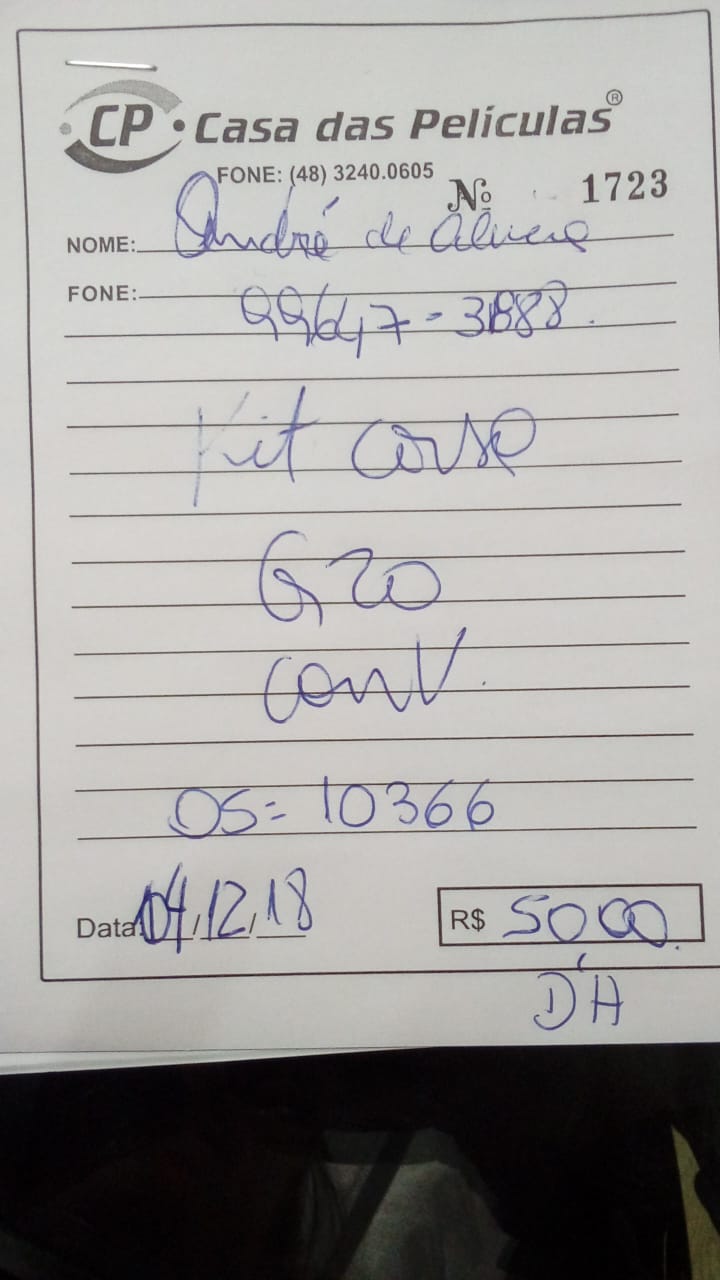 CP • Casa das Películas®
FONE: (48) 3240.0605
Nº 1723
NOME: André de
FONE: 99647-3888.
Kit corsa
G20
conv.
OS= 10366
Data: 04/12/18
R$ 5000